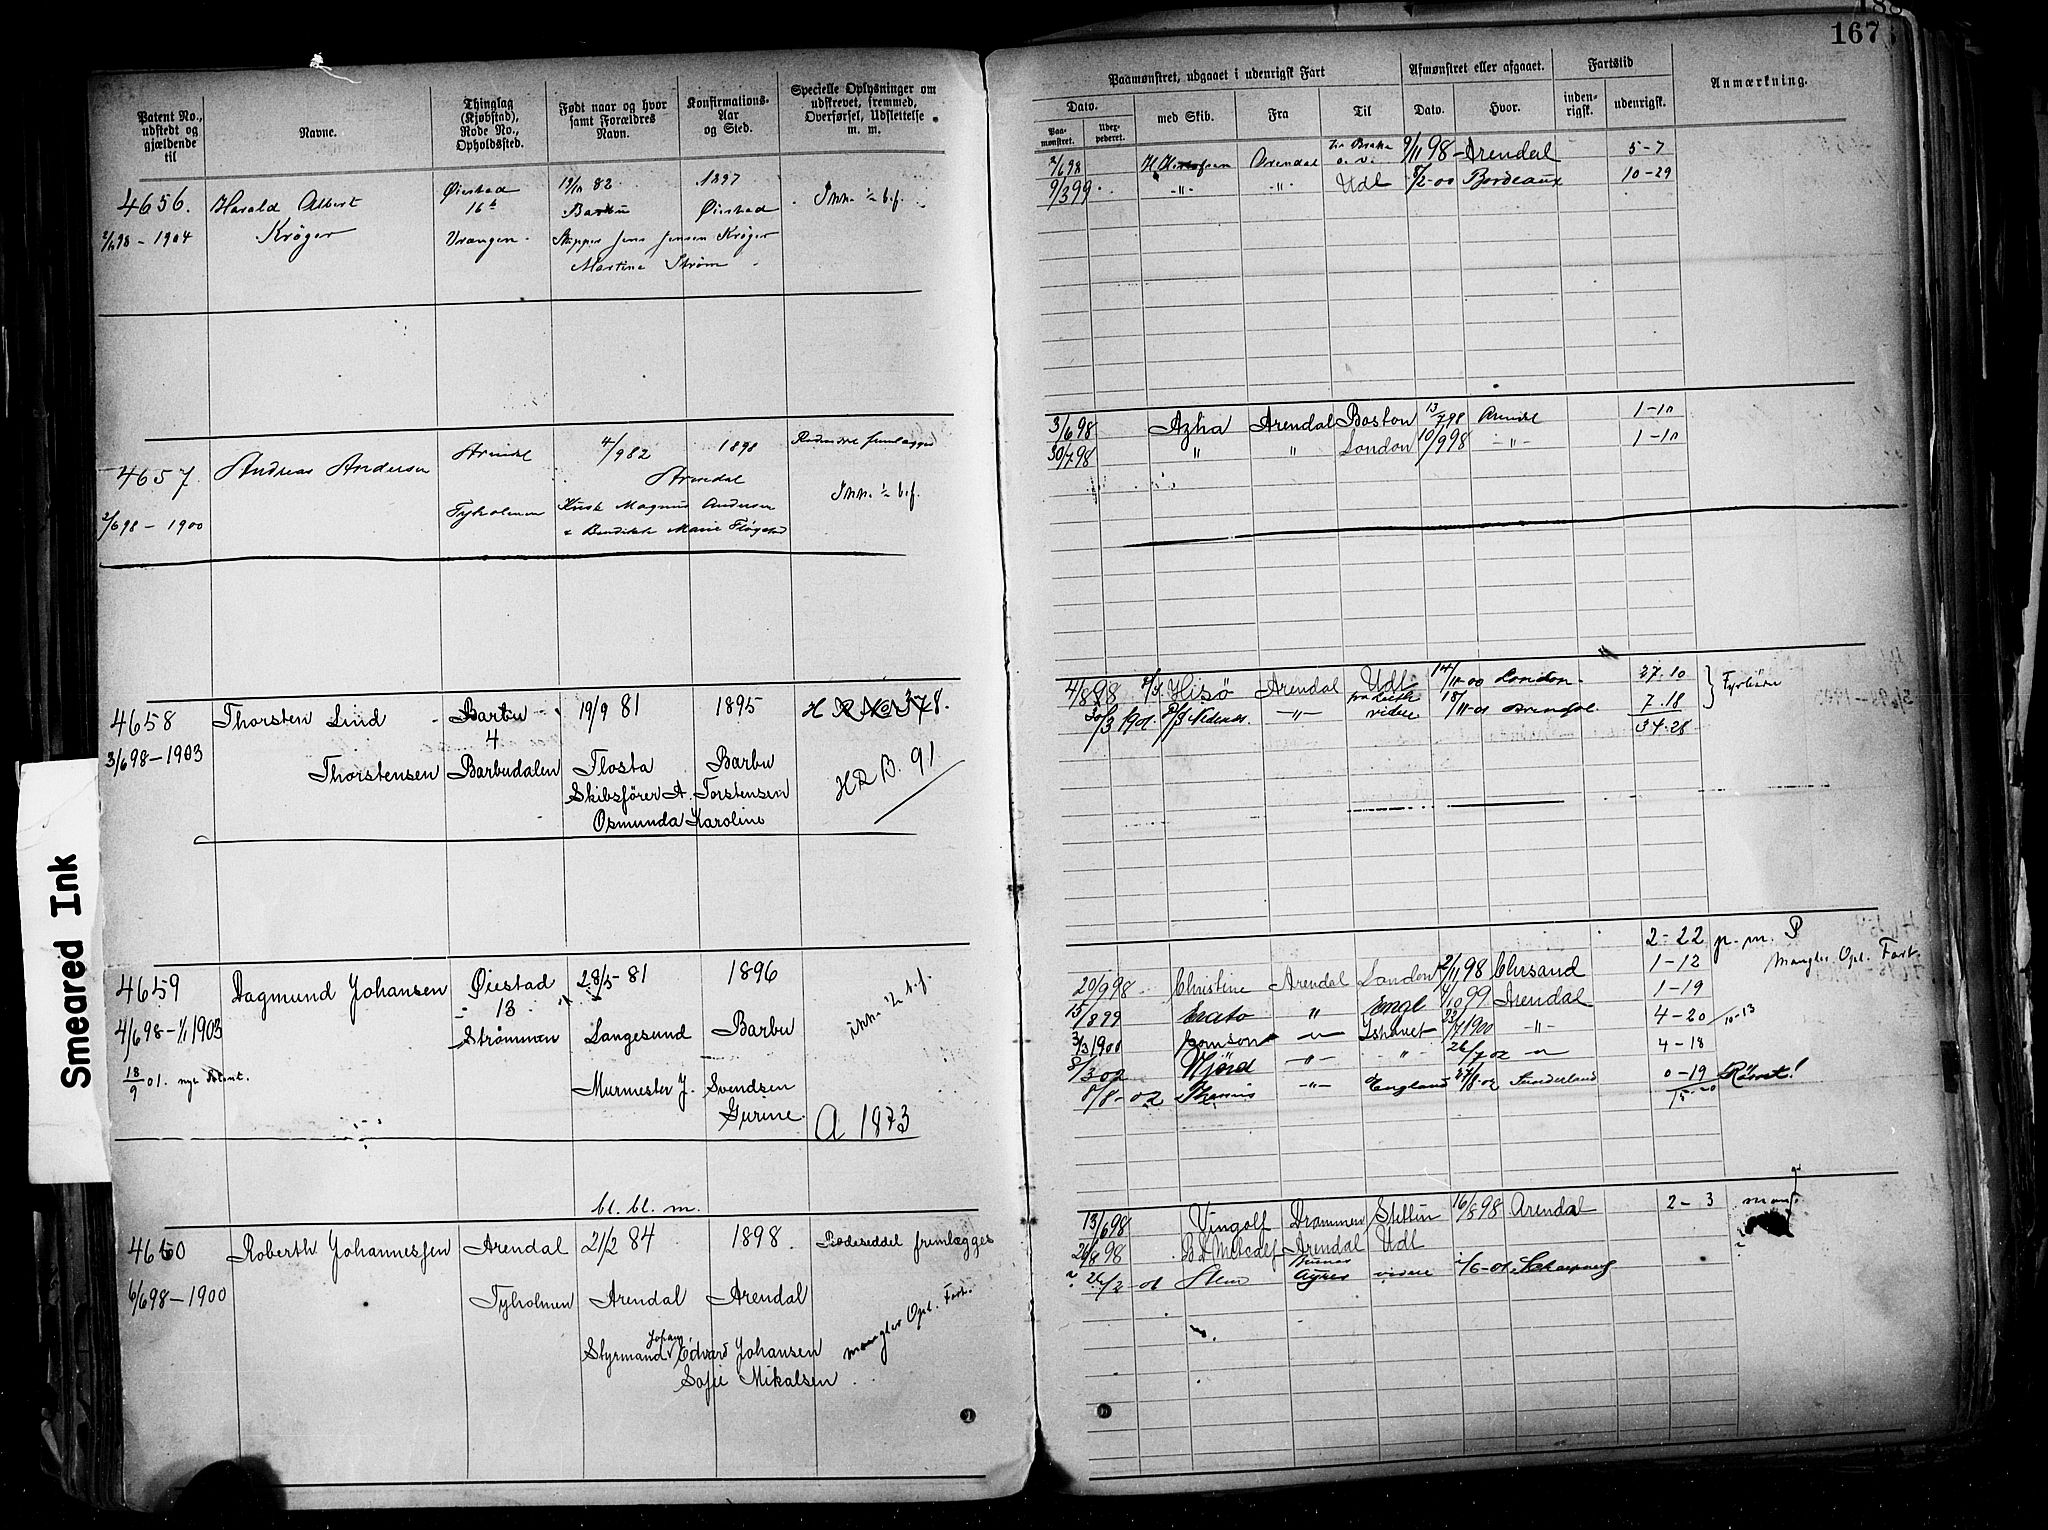 188
167
Patent No., udstedt og gjældende til
Navne.
Thinglag (Kjøbstad), Rode No., Opholdssted.
Født naar og hvor samt Forældres Navn.
Konfirmations-Aar og Sted.
Specielle Oplysninger om udskrevet, fremmed, Overførsel, Udslettelse m. m.
Paamønstret, udgaaet i udenrigsk Fart
Afmønstret eller afgaaet.
Fartstid
Anmærkning.
Dato.
Paa-mønstret.
med Skib.
Fra
Til
Dato.
Hvor.
inden-rigsk.
udenrigsk.
4656. Harald Albert Øiestad 19/11 82 1897 Ikke 1/2 b.f.
Krøger 16 Barbu Øiestad
2/6 98 – 1904 Vrangen Skipper Jens Jensen Krøger
Martine Strøm
2/6 98 Arendal 9/11 98 Arendal 5-7
9/3 99 -"- -"- Udl 8/2-00 Bordeaux 10-29
4657. Andreas Andersen Arendal 4/9 82 1898 fremlagt
Arendal
Tyholmen Magnus Andersen Ikke 1/2 b.f.
2/6 98 – 1900 Marie
3/6 98 Azha Arendal Boston 13/7 98 Arendal 1-10
30/7 98 " " London 10/9 98 -"- 1-10
4658 Thorsten Lind Barbu 19/9 81 1895 H R No 378.
3/6 98 – 1903 4
Thorstensen Barbudalen Flosta Barbu H R B. 91
Skibsfører A. Torstensen
Osmunda Karoline
4/8 98 Hisö Arendal Udl 14/11-00 London 27.10
30/3 1901 Nedenes -"- videre 18/11-01 Arendal 7.18 Fyrbøder
34-28
4659 Dagmund Johansen Øiestad 28/5-81 1896 ikke 1/2 b.f.
13
4/6 98 – 1/1 1903 Strømmen Langesund Barbu
18/9 01. nye Patent. Murmester J. Svendsen
Gurine A 1873
2-22 p. m. P
20/9 98 Christine Arendal London 2/11 98 Chrsand 1-12 Mangler Opl. Fart.
15/8 99 Erato " Engl 4/10 99 Arendal 1-19
3/3 1900 Jamson Ishavet 23/7 1900 -"- 4-20 10-13
8/3 02 Hjörd -"- " 26/7 02 4-18
8/8-02 -"- England 27/8-02 Sunderland 0-19 Rømt!
15-20
bl. bl. m.
4660 Roberth Johannessen Arendal 21/2 84 1898. Rodeseddel fremlægges
6/6 98 – 1900 Tyholmen Arendal Arendal
Styrmand Johan Edvard Johansen mangler Opl. Fart.
Sofie Mikalsen
13/6 98 Vingolf Drammen Stettin 16/8 98 Arendal 2-3
26/8 98 B D Metcalf Arendal Udl
? 26/2-01 Buenos Ayres videre
Smeared Ink